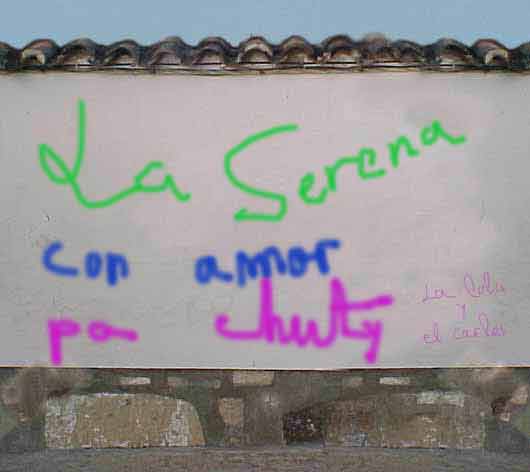 La Serena
con amor
pa chuty
La Lola
y
el carlos